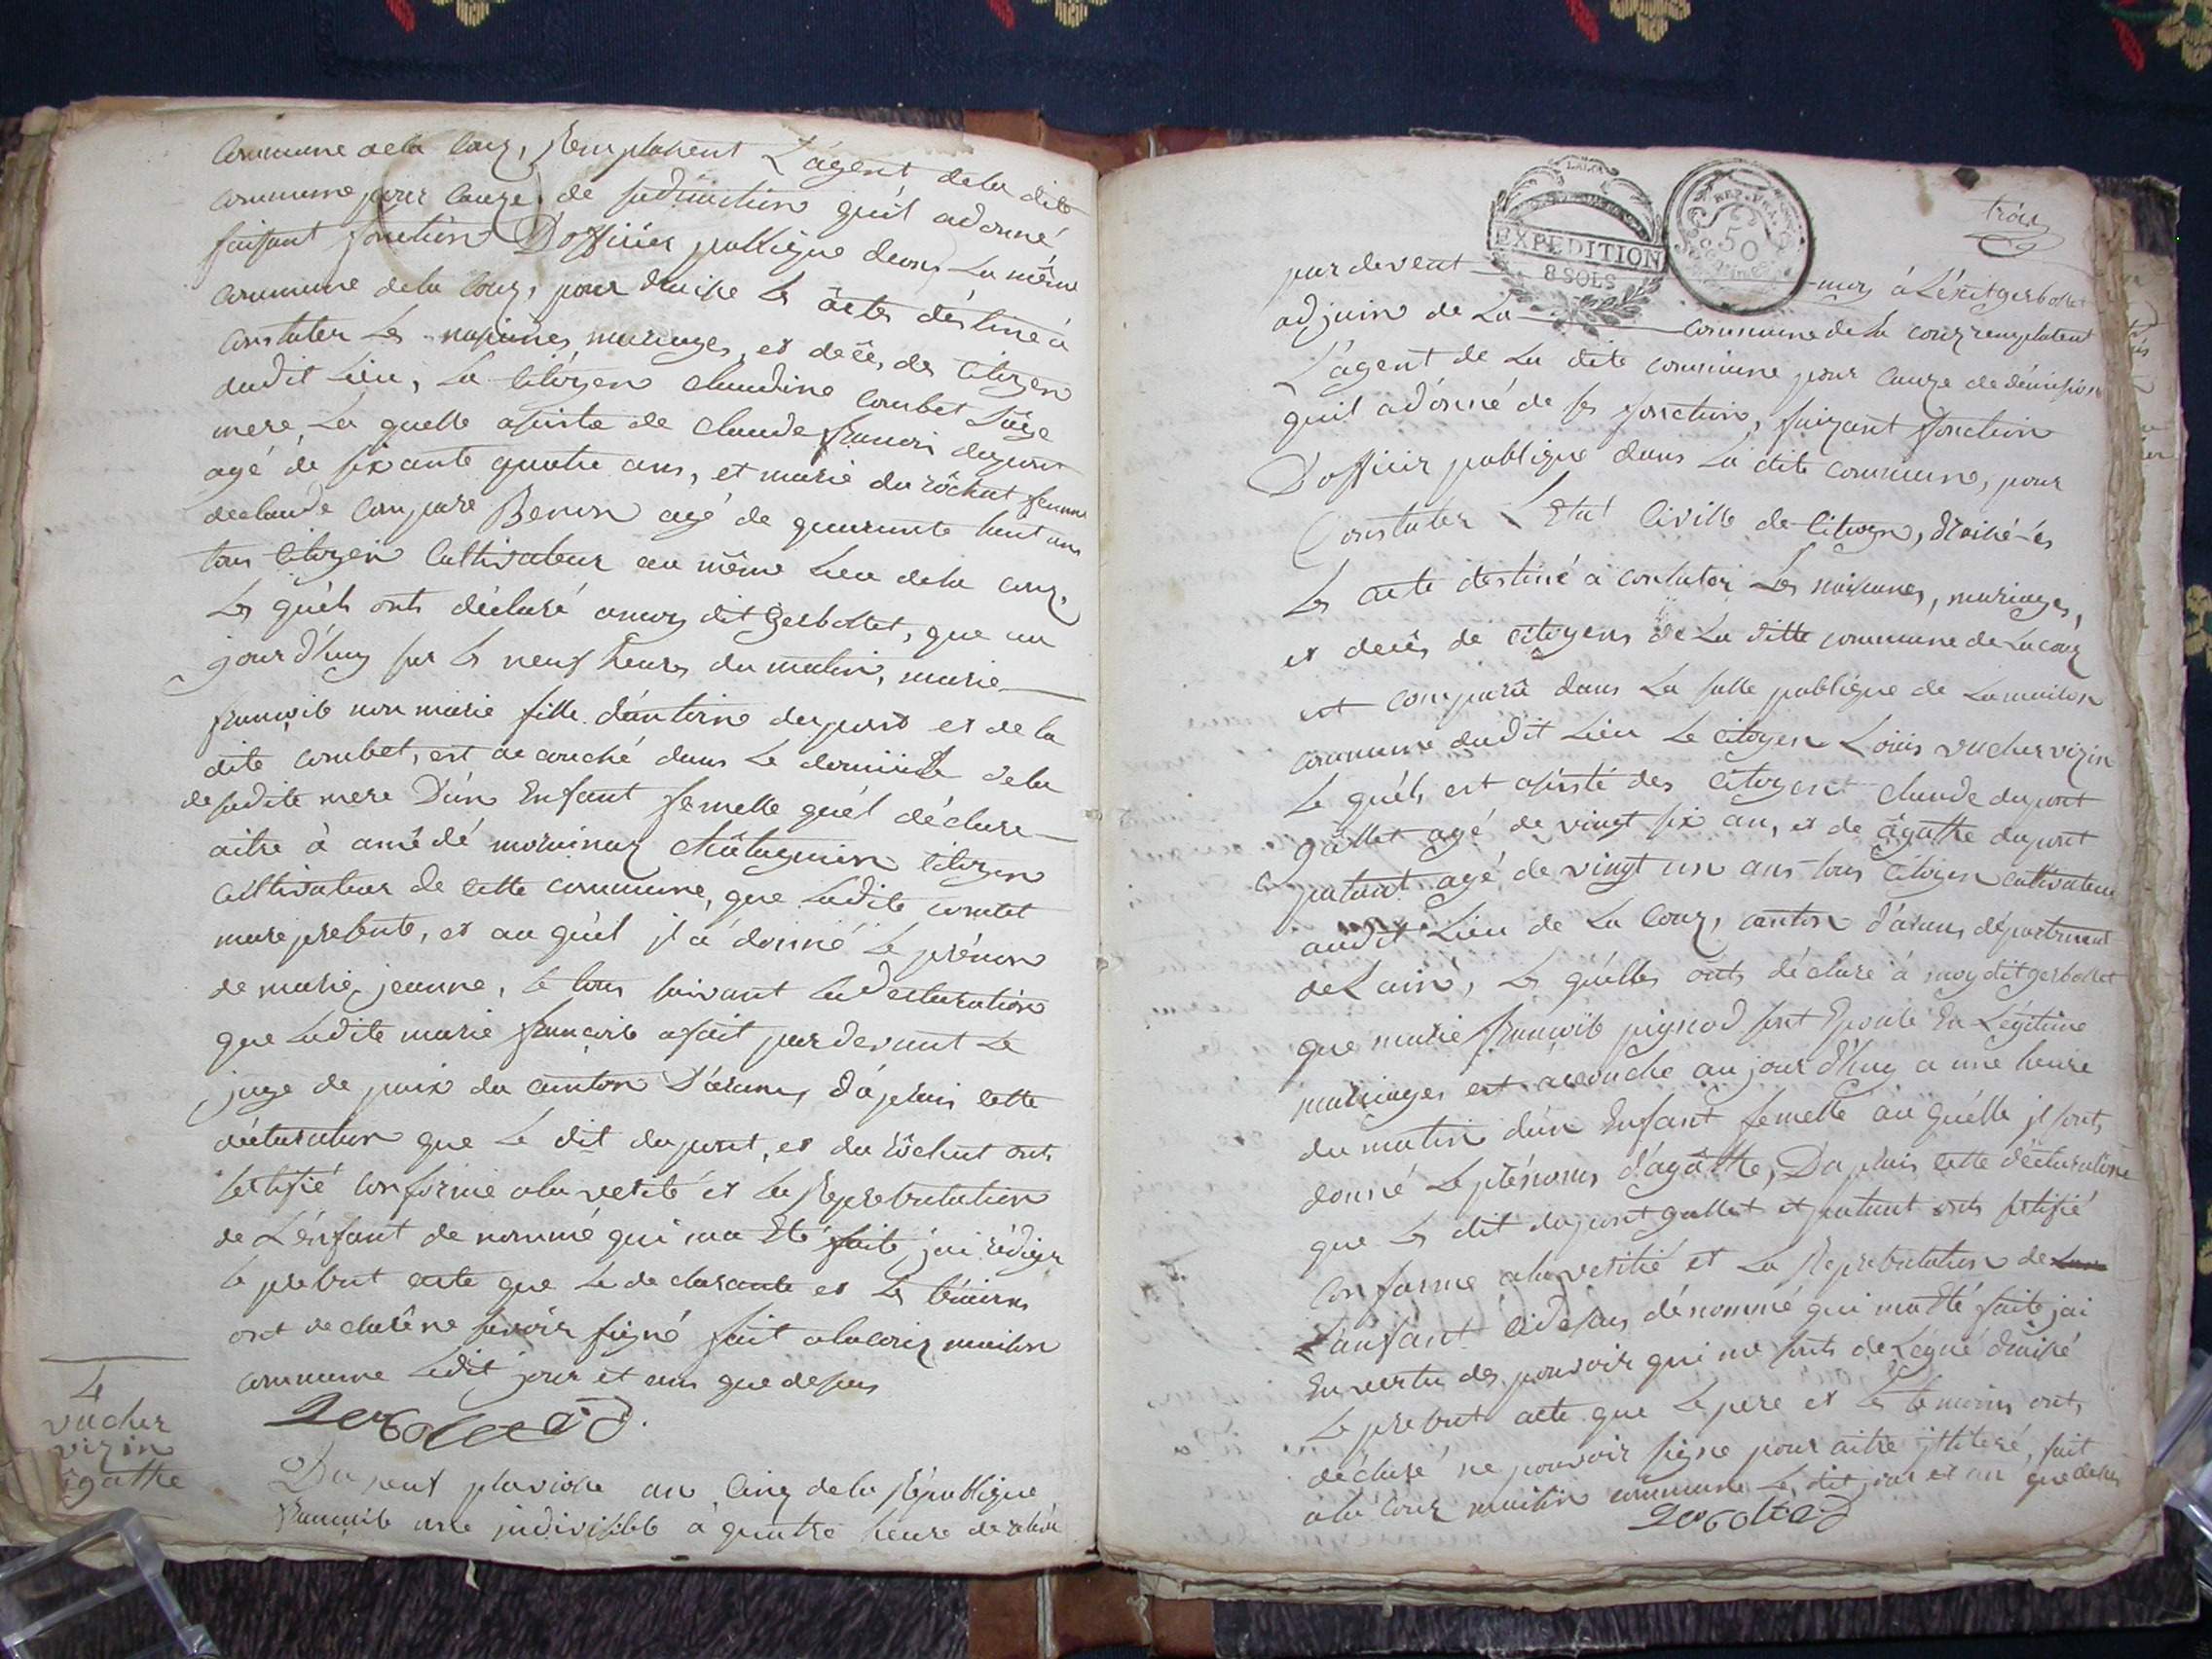 Commune de la Coux, Remplasent L'agent de la dite
commune pour cauze de sa dimition quil a donné
faisant fonction D'officier publique dens La même
commune de la Coux, pour druire Les actes destiné à
constater Les nesances mariages, et decês, des Citoyen
dudit Lieu, La Citoyen claudine Combet Sage
mere, La quelle asisté de claude francoi dupont
agé de soixante quatre ans, et marie du rôchat femme
de claude Compare Benon agé de quarante huit ans
tous Citoyen Cultivateur au même Lieu de la Coux,
Les quels onts déclaré a moy dit gerbollet, que au
jourd'huy sur les neuf heures du matin, marie
francoise non marié fille d'antoine dupont et de la
dite combet, est acouché dans Le domicile de la
de sadite mere D'un Enfant femelle quél déclare
aitre à amédé morinaz Châtagnien Citoyen
cultivateur de cette commune, que Ladite combet
mere presente, et au quél jl a donné Le prénom
de marie jeanne, le tous suivant La declaration
que Ladite marie francoise a fait par devant Le
juge de paix du canton D'arans, d'aprais cette
déclaration que Le dit dupont, et du rôchat onts
sertifié conforme a la verité et La Represantation
de L'énfant de nommé qui ma Eté faite, jai rédiger
le present acte que Le declarante et Les témoins
ont declarê ne savoir signé fait a la Coux maison
commune Ledit jour et ans que desus
gerbolet adj.
4
vucher
vizin
agathe
Du neuf pluviose an Cinq de la République
francoise une jndivisible à quatre heure de relevé
troix
EXPEDITION
8 SOLS
REP. FRA.
50
Centimes
par devent moy à Léxit gerbollet
adjoin de La commune de La coux remplasent
L'agent de La dite commune pour Cauze de démission
quil a donné de ses fonction, faizant fonction
D'officier publique dans La dite commune, pour
Constater L'Etat Civille de Citoyen, druire les
Les acte destiné à constater Les naisanses, mariages,
et decês de citoyens de La ditte commune de La coux
est comparû dans La salle publique de La maison
commune dudit Lieu Le citoyen Louis vucher vizin
Le quél, est asisté des Citoyent claude dupont
gallet agé de vingt six an, et de agathe dupont
patant agé de vingt un ans tous Citoyen cultivateur
audit Lieu de La Coux, canton d'arans département
de Lain, Les quelles onts déclaré à moy dit gerbollet
que marie francoise pignod sont Epouse En Légitime
mariages est acouché au jourd'huy a une heure
du matin d'un Enfant femelle au quélle jl sont,
donné Le prénoms d'agâthe, Daprais cette déclaration
que Les dit dupont gallet et patant onts sertifié
Conforme a la verité et La Represantation de
L'anfant cidesus dénommé qui ma Eté faite, jai
En vertu des pouvoir qui me sonts de Légué druiré
Le present acte que Le pere et Les temoins onts
déclaré ne pouvoir signe pour aitre jlliteré, fait
a la Coux maison commune Le dit jour et an que desus
gerbolet adj